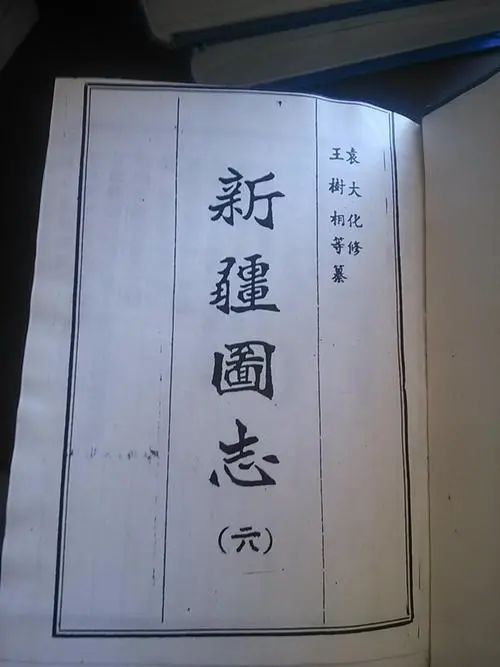 袁大化修
王樹相等纂
新疆圖志
(六)